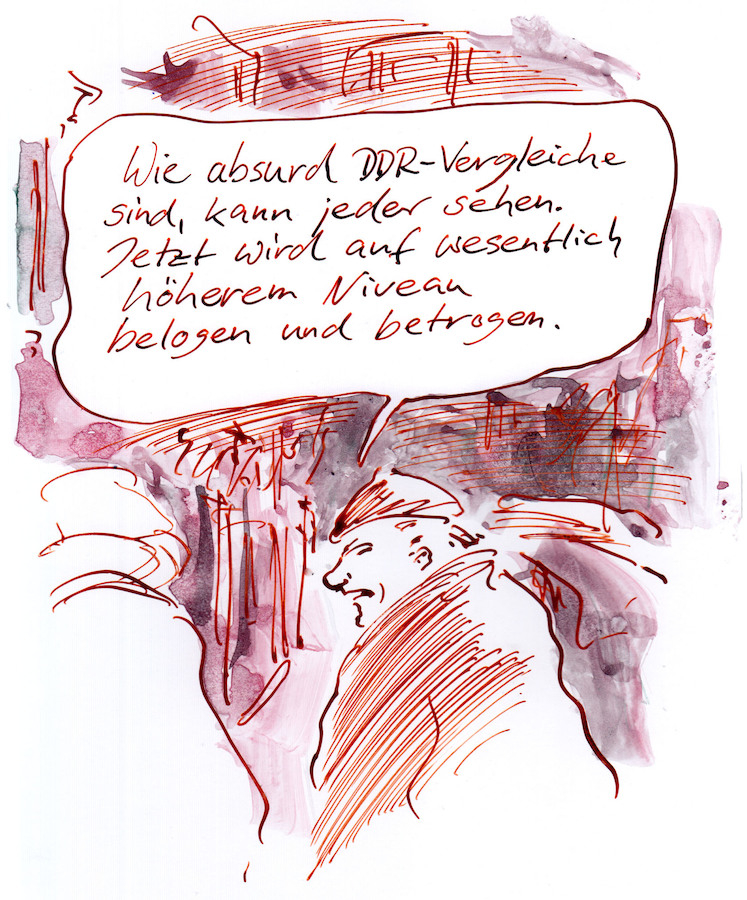 Wie absurd DDR-Vergleiche
sind, kann jeder sehen.
Jetzt wird auf wesentlich
höherem Niveau
belogen und betrogen.